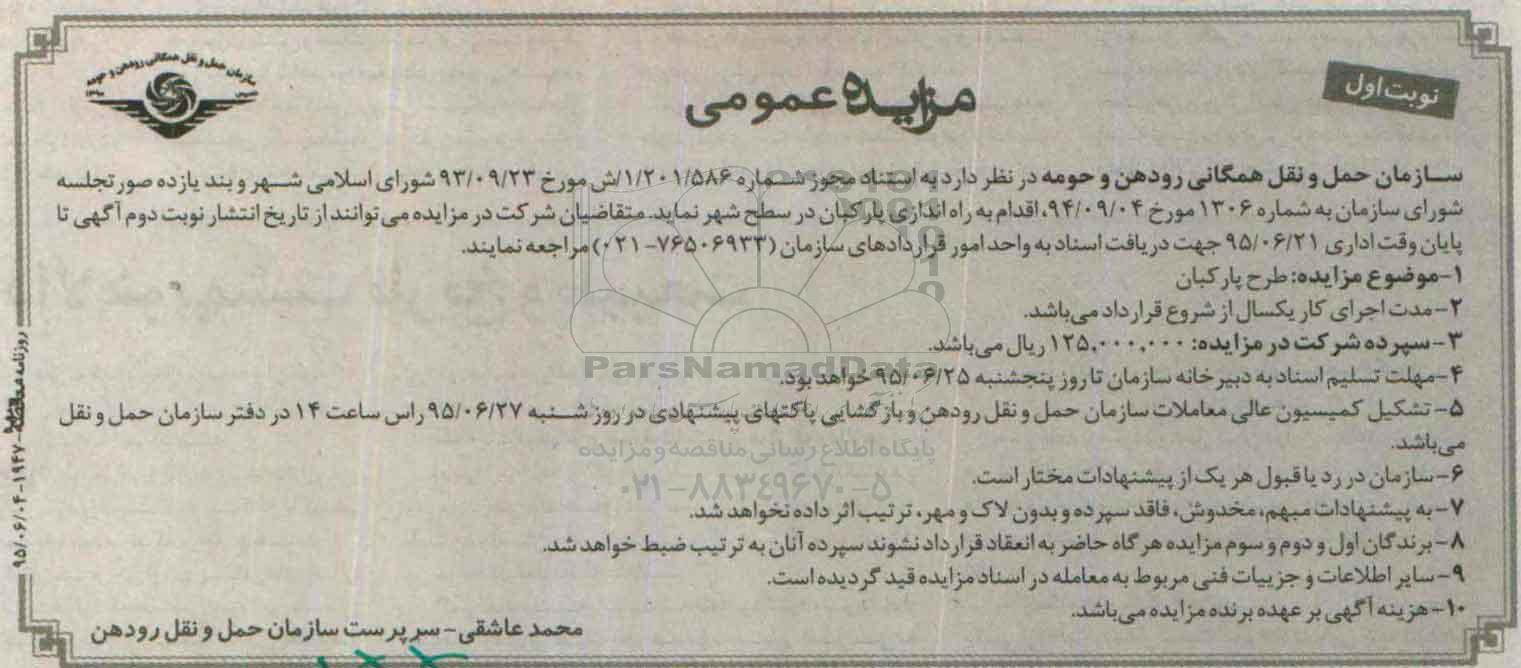 نوبت اول
سازمان حمل و نقل همگانی رودهن و حومه
مزایده عمومی
سازمان حمل و نقل همگانی رودهن و حومه در نظر دارد به استناد مجوز شماره ۱/۲۰۱/۵۸۶/ش مورخ ۹۳/۰۹/۲۳ شورای اسلامی شهر و بند یازده صورتجلسه
شورای سازمان به شماره ۱۳۰۶ مورخ ۹۴/۰۹/۰۴، اقدام به راه اندازی پارکبان در سطح شهر نماید. متقاضیان شرکت در مزایده می‌توانند از تاریخ انتشار نوبت دوم آگهی تا
پایان وقت اداری ۹۵/۰۶/۲۱ جهت دریافت اسناد به واحد امور قراردادهای سازمان (۷۶۵۰۶۹۳۳-۰۲۱) مراجعه نمایند.
۱-موضوع مزایده: طرح پارکبان
۲-مدت اجرای کار یکسال از شروع قرارداد می‌باشد.
۳-سپرده شرکت در مزایده: ۱۲۵,۰۰۰,۰۰۰ ریال می‌باشد.
۴-مهلت تسلیم اسناد به دبیرخانه سازمان تا روز پنجشنبه ۹۵/۰۶/۲۵ خواهد بود.
۵-تشکیل کمیسیون عالی معاملات سازمان حمل و نقل رودهن و بازگشایی پاکتهای پیشنهادی در روز شنبه ۹۵/۰۶/۲۷ راس ساعت ۱۴ در دفتر سازمان حمل و نقل
می‌باشد.
۶-سازمان در رد یا قبول هر یک از پیشنهادات مختار است.
۷-به پیشنهادات مبهم، مخدوش، فاقد سپرده و بدون لاک و مهر، ترتیب اثر داده نخواهد شد.
۸-برندگان اول و دوم و سوم مزایده هرگاه حاضر به انعقاد قرارداد نشوند سپرده آنان به ترتیب ضبط خواهد شد.
۹-سایر اطلاعات و جزییات فنی مربوط به معامله در اسناد مزایده قید گردیده است.
۱۰-هزینه آگهی بر عهده برنده مزایده می‌باشد.
محمد عاشقی-سرپرست سازمان حمل و نقل رودهن
ParsNamadData
پایگاه اطلاع رسانی مناقصه و مزایده
۰۲۱-۸۸۳۴۹۶۷۰-۵
روزنامه
۱۹۴۷-۹۵/۰۶/۰۴